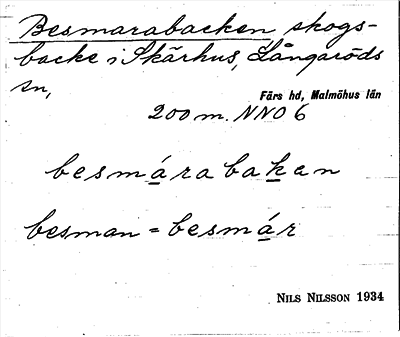 Besmarabacken, skogs-
backe i Skärhus, Långaröds
sn,
Färs hd, Malmöhus län
200 m. NNO 6
besmárabakan
besman = besmár
NILS NILSSON 1934